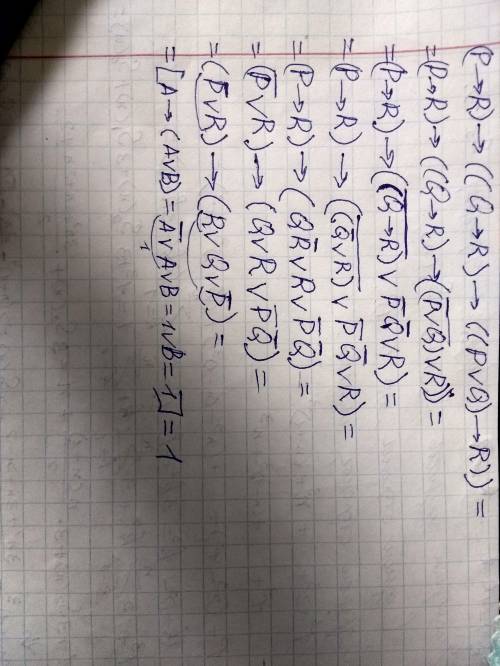 (P→R)→((Q→R)→((P∨Q)→R))=
=(P→R)→((Q→R)→(\overline{(P∨Q)}∨R))=
=(P→R)→(\overline{(Q→R)}∨P̅Q̅∨R)=
=(P→R)→(\overline{(Q̅∨R)}∨P̅Q̅∨R)=
=(P→R)→(QR̅∨R∨P̅Q̅)=
=(P̅∨R)→(Q∨R∨P̅Q̅)=
=(P̅∨R)→(R∨Q∨P̅)=
=[A→(A∨B)=A̅∨A∨B=1∨B=1]=1
1